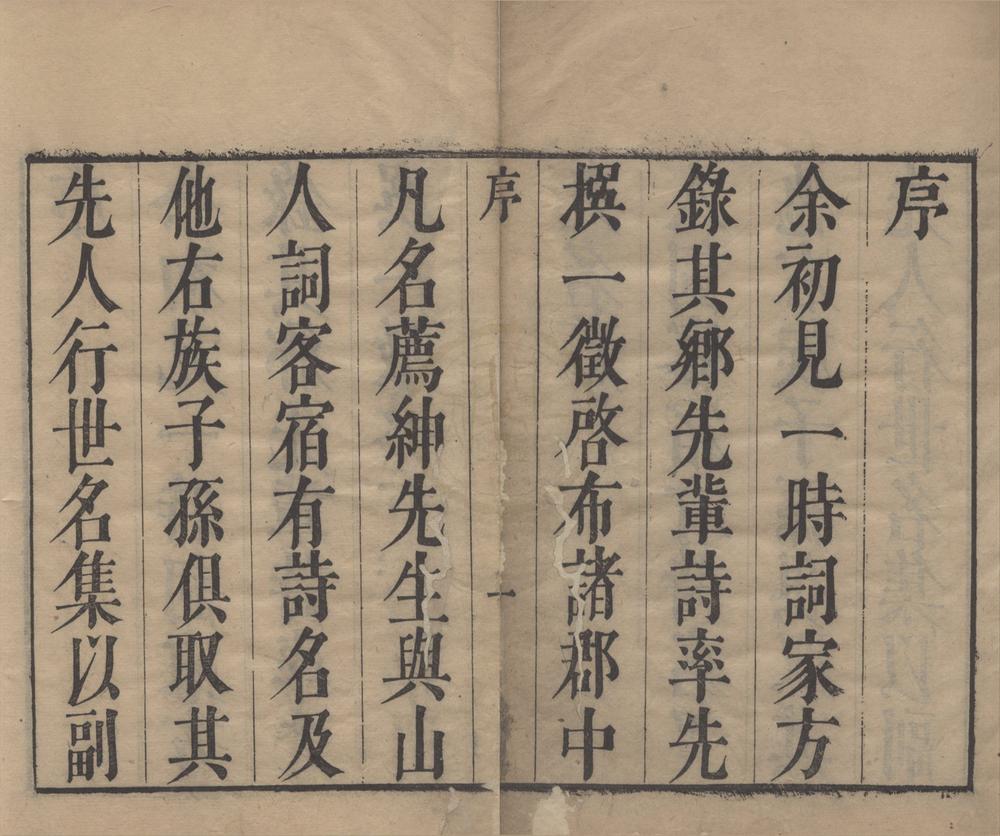 序
余初見一時詞家方
錄其鄉先輩詩率先
撰一徵啓布諸郡中
序 一
凡名薦紳先生與山
人詞客宿有詩名及
他右族子孫俱取其
先人行世名集以副